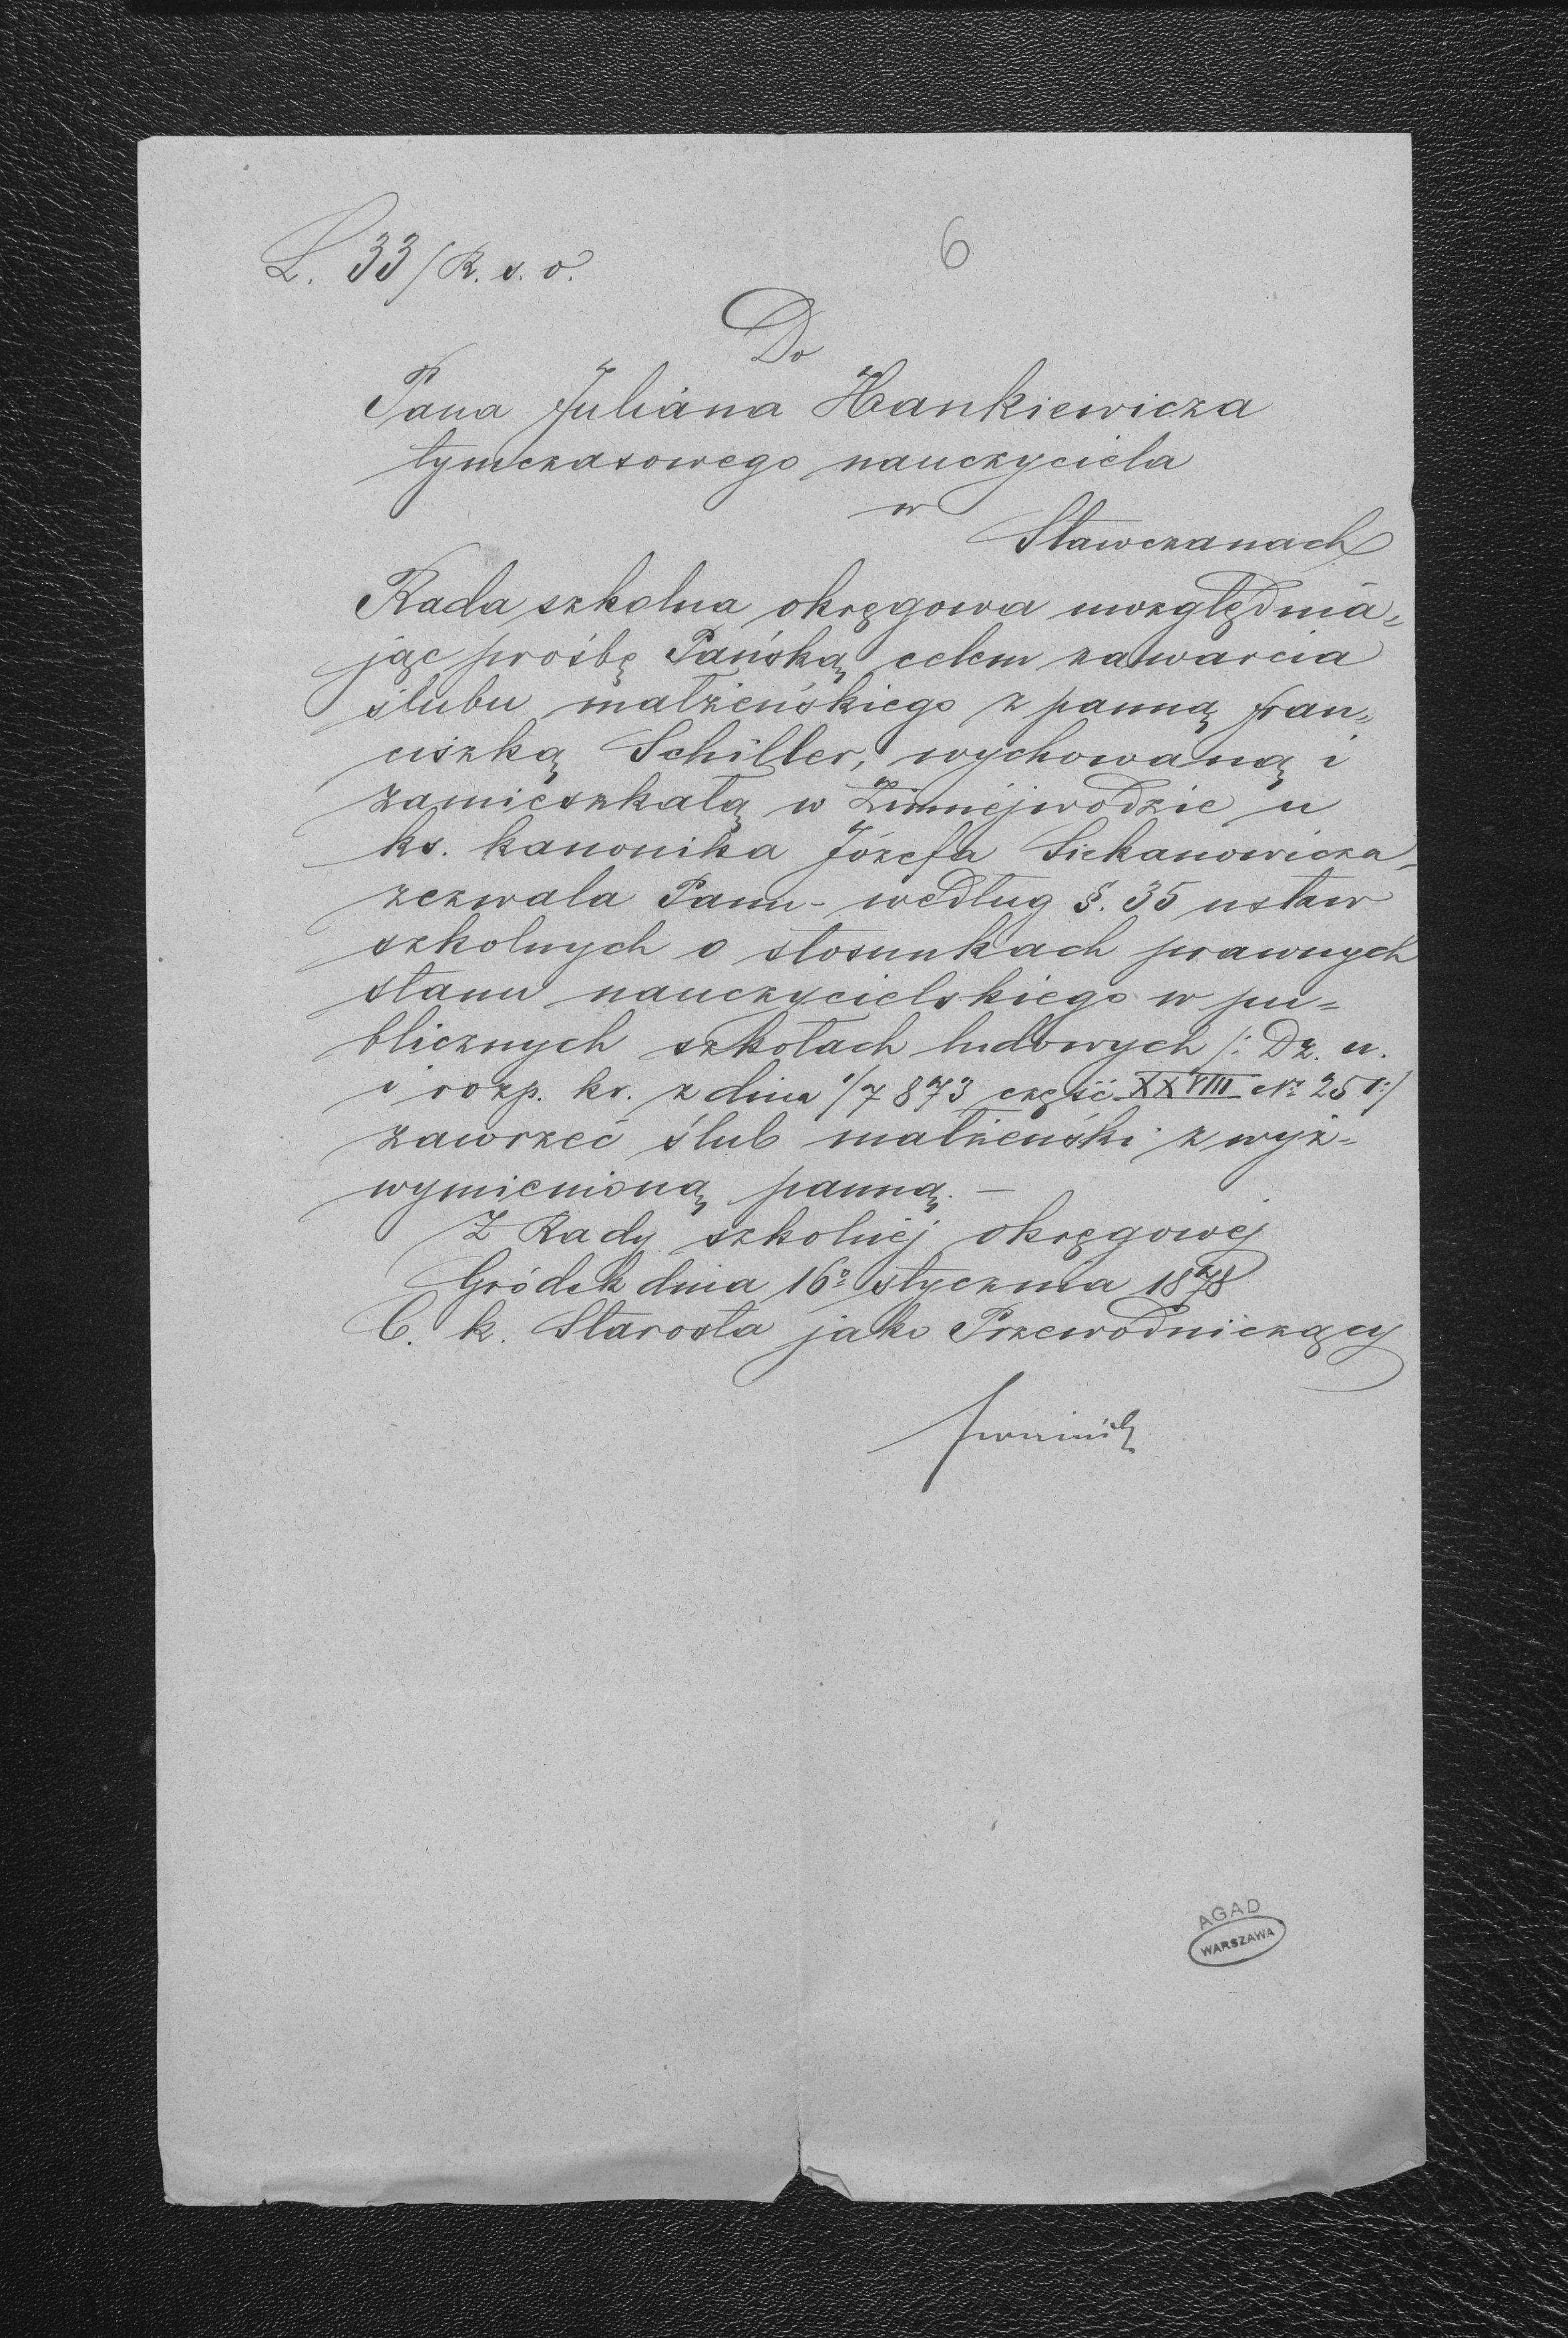 L. 33/R. s. o.
6
Do
Pana Juliana Hankiewicza
tymczasowego nauczyciela
w
Stawczanach
Rada szkolna okręgowa uwzględnia=
jąc prośbę Pańską celem zawarcia
ślubu małżeńskiego z panną Fran=
ciszką Schiller, wychowaną i
zamieszkałą w Zimnejwodzie u
ks. kanonika Józefa Siekanowicza,
zezwala Panu - według §. 35 ustaw
szkolnych o stosunkach prawnych
stanu nauczycielskiego w pu=
blicznych szkołach ludowych /: Dz. u.
i rozp. kr. z dnia 1/7 873 część XXVIII № 251:/
zawrzeć ślub małżeński z wyż=
wymienioną panną. —
Z Rady szkolnéj okręgowej
Gródek dnia 16º stycznia 1878
C. k. Starosta jako Przewodniczący
AGAD
WARSZAWA